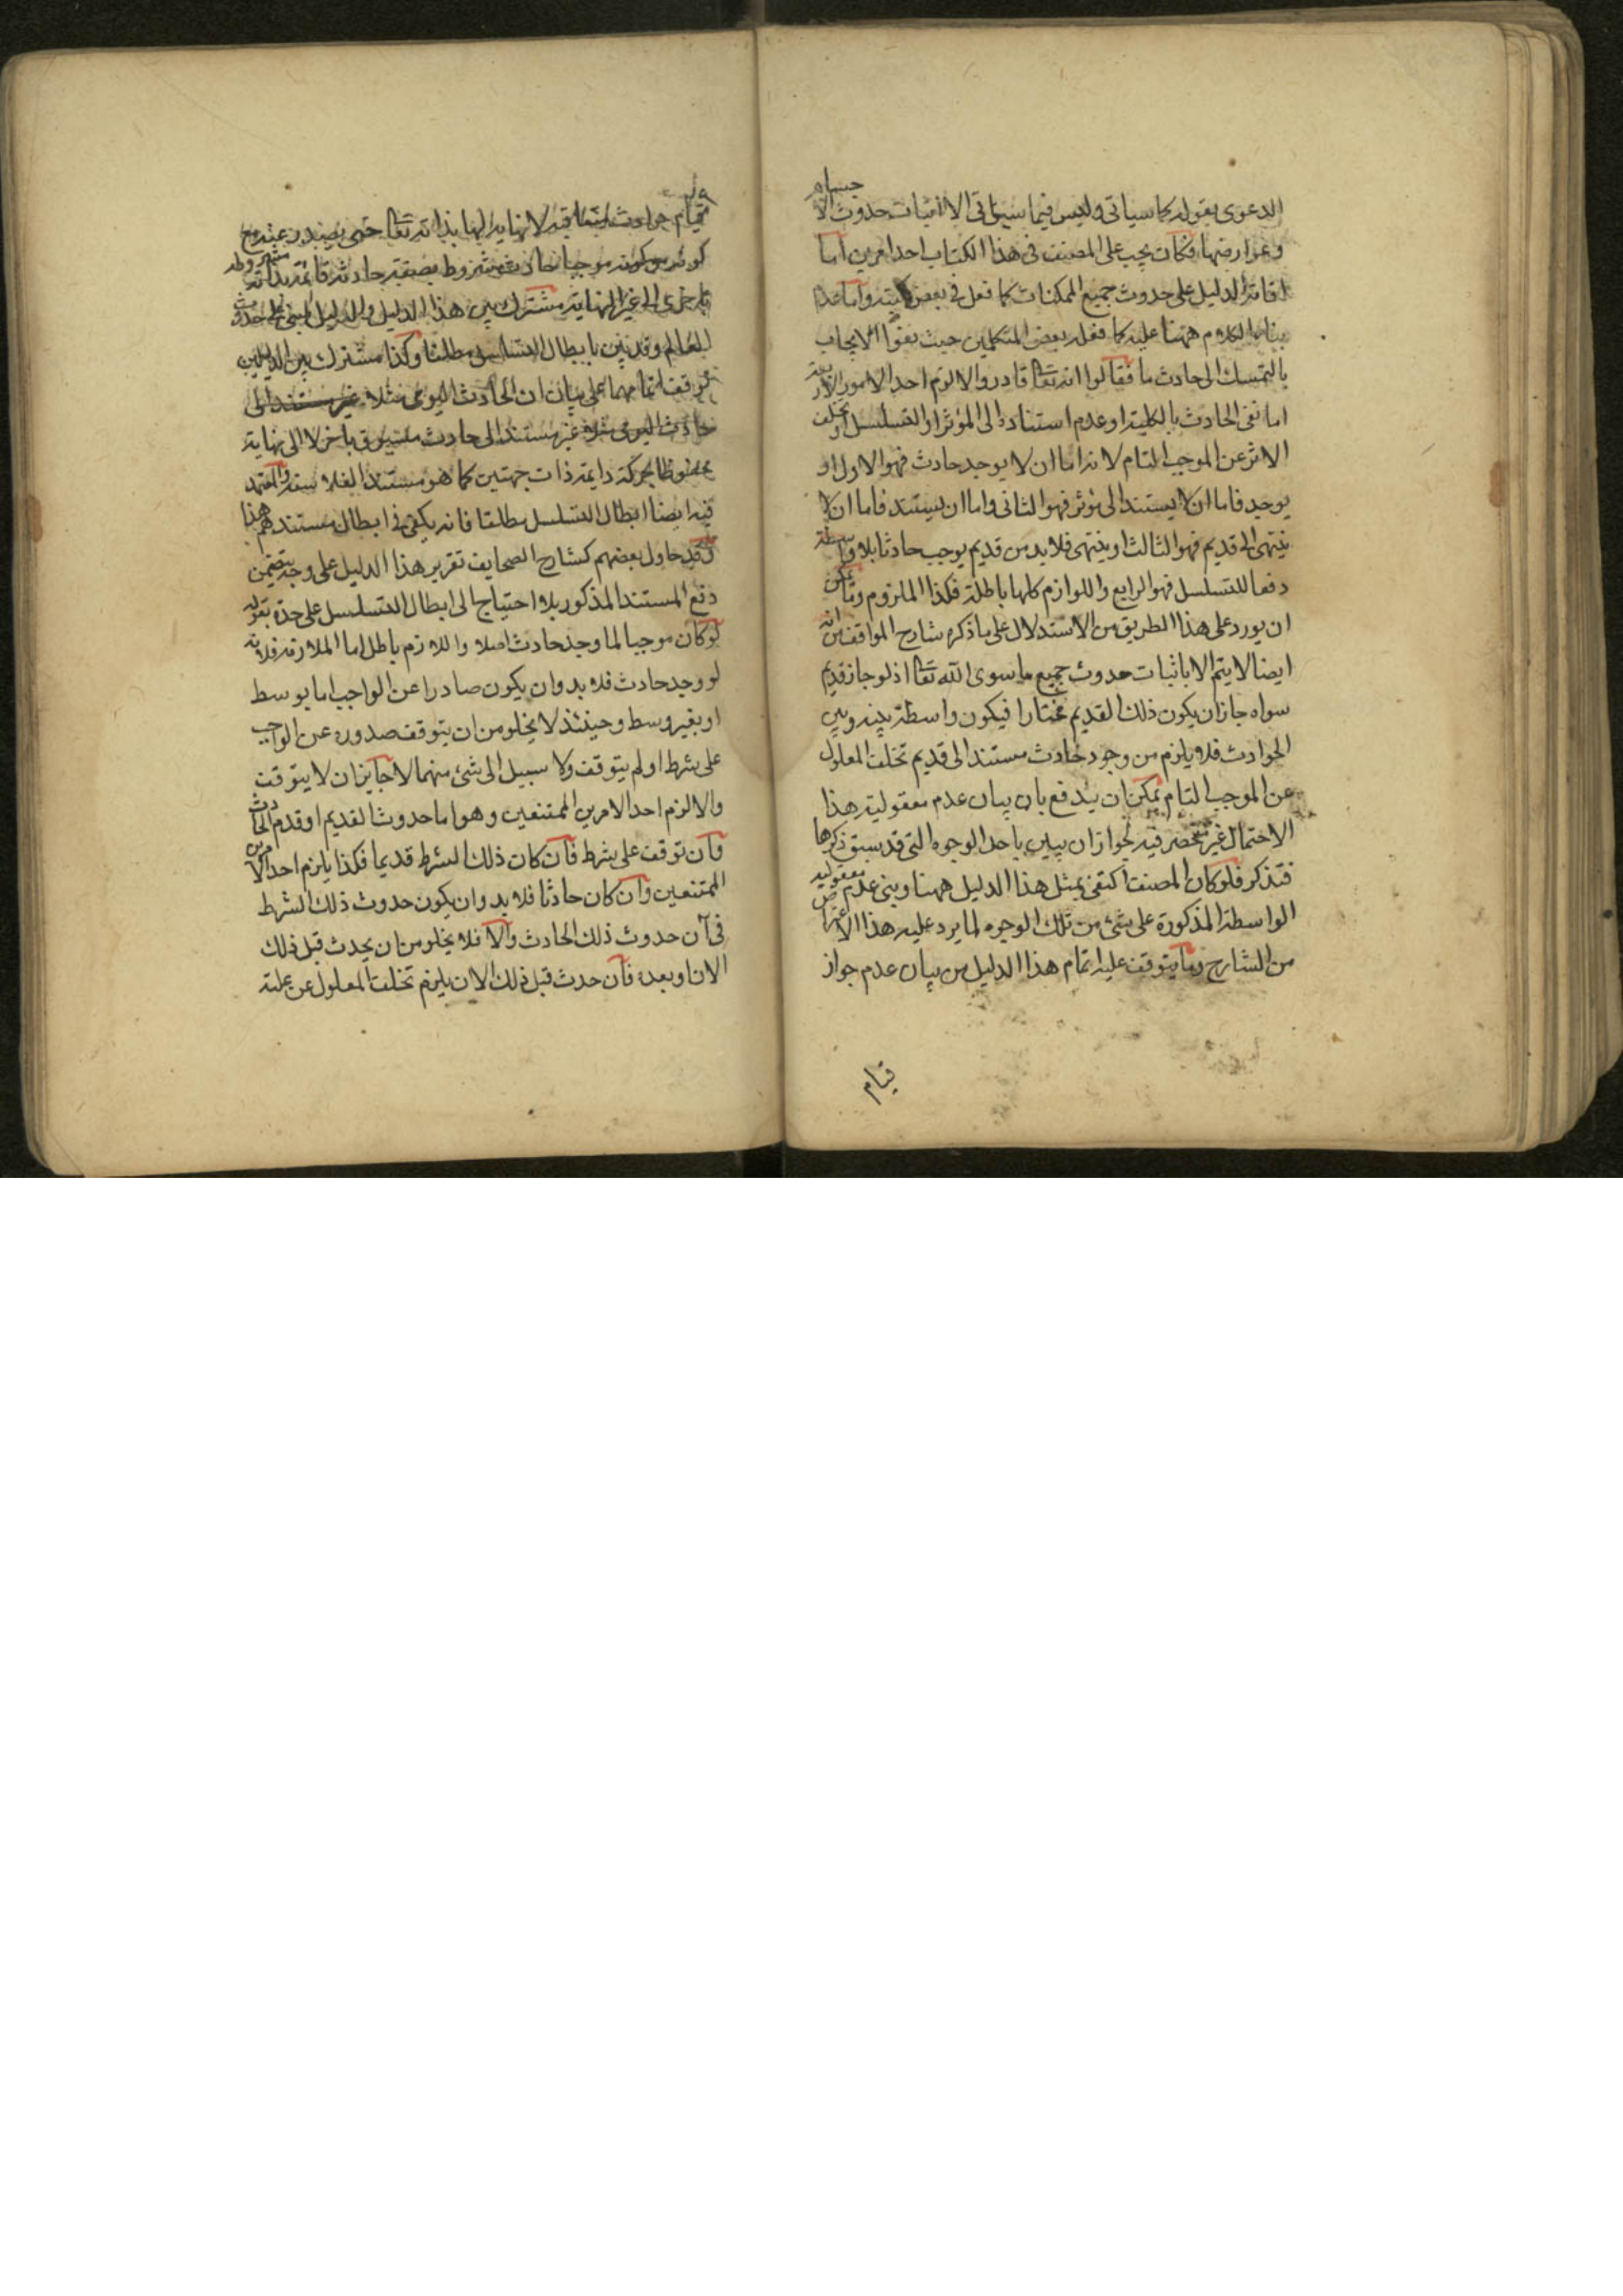 الدعوى بقوله كما سياتى وليس فيما سياتى الا اثبات حدوث الاجسام
وعوارضها فكان يجب على المصنف فى هذا الكتاب احد امرين اما
اقامة الدليل على حدوث جميع الممكنات كما فعل فى بعض كتبه واما عدم
بناء الكلام ههنا عليه كما فعله بعض المتكلمين حيث نفوا الايجاب
بالتمسك الى حادث ما فقالوا انه تعا قادر والا لزم احد الامور الاربعة
اما نفى الحادث بالكلية او عدم استناده الى المؤثر او التسلسل او تخلف
الاثر عن الموجب التام لانه اما ان لا يوجد حادث فهو الاول او
يوجد فاما ان لا يستند الى مؤثر فهو الثانى واما ان يستند فاما ان لا
ينتهى الى قديم فهو الثالث او ينتهى فلا بد من قديم يوجب حادثا بلا واسطة
دفعا للتسلسل فهو الرابع واللوازم كلها باطلة فكذا الملزوم وما يمكن
ان يورد على هذا الطريق من الاستدلال على ما ذكره شارح المواقف من انه
ايضا لا يتم الا باثبات حدوث جميع ما سوى الله تعا اذ لو جاز قديم
سواه جاز ان يكون ذلك القديم مختارا فيكون واسطة بينه وبين
الحوادث فلا يلزم من وجود حادث مستند الى قديم تخلف المعلول
عن الموجب التام يمكن ان يندفع بان بيان عدم معقولية هذا
الاحتمال غير منحصر فيه لجواز ان يبين باحد الوجوه التى قد سبق ذكرها
فتذكر فلو كان المصنف اكتفى بمثل هذا الدليل ههنا وبنى عدم معقولية
الواسطة المذكورة على شئ من تلك الوجوه لما يرد عليه هذا الاعتراض
من الشارح وما يتوقف عليه اتمام هذا الدليل من بيان عدم جواز
قيام
قيام حوادث متعاقبة لا نهاية لها بذاته تعا حتى يصدر عنه مع
كونه موجبا حادث مشروط بصفة حادثة قائمة بذاته مشروطة
باخرى الى غير النهاية مشترك بين هذا الدليل والدليل المبنى على حدوث
العالم وقد بين بابطال التسلسل مطلقا وكذا مشترك بين الدليلين
توقف اتمامهما على بيان ان الحادث اليومى مثلا غير مستند الى
حادث اليومى مثلا غير مستند الى حادث مسبوق باخر لا الى نهاية
محفوظا بحركة دايمة ذات جهتين كما هو مستند الفلاسفة والعمدة
فيه ايضا ابطال التسلسل مطلقا فانه يكفى فى ابطال مستندهم هذا
وقد حاول بعضهم كشارح الصحايف تقرير هذا الدليل على وجه يتضمن
دفع المستند المذكور بلا احتياج الى ابطال التسلسل على حدة بقوله
لو كان موجبا لما وجد حادث اصلا واللازم باطل اما الملازمة فلانه
لو وجد حادث فلا بد وان يكون صادرا عن الواجب اما بوسط
او بغير وسط وحينئذ لا يخلو من ان يتوقف صدوره عن الواجب
على شرط او لم يتوقف ولا سبيل الى شئ منهما لا جايز ان لا يتوقف
والا لزم احد الامرين الممتنعين وهو اما حدوث القديم او قدم الحادث
وان توقف على شرط فان كان ذلك الشرط قديما فكذا يلزم احد الامرين
الممتنعين وان كان حادثا فلا بد وان يكون حدوث ذلك الشرط
فى آن حدوث ذلك الحادث والا فلا يخلو من ان يحدث قبل ذلك
الان او بعده فان حدث قبل ذلك الان يلزم تخلف المعلول عن علته